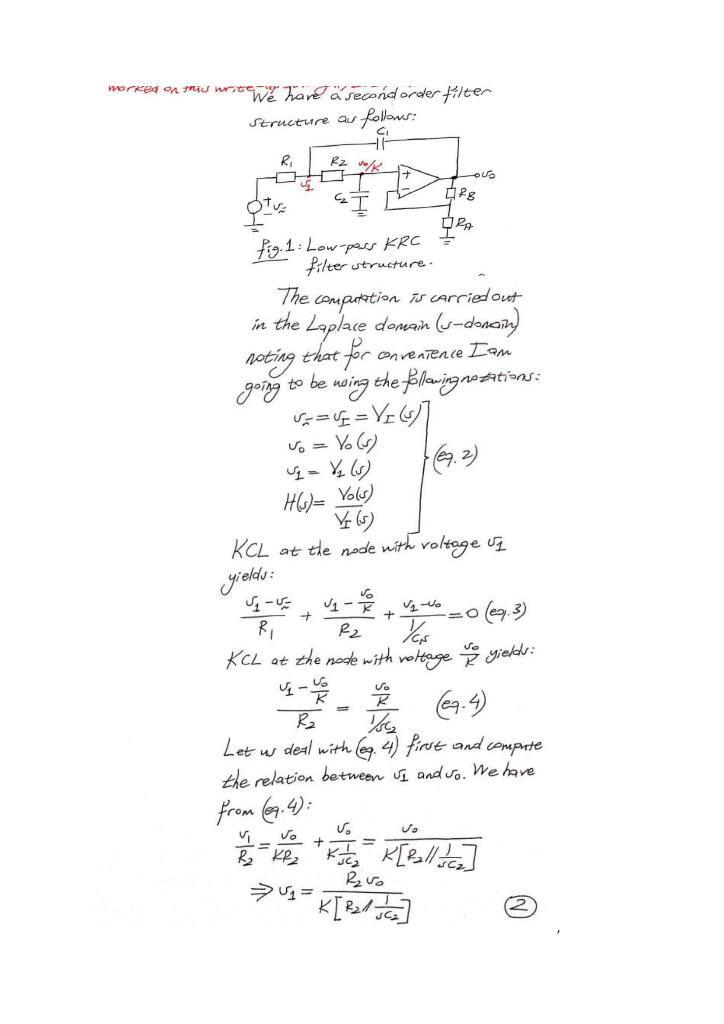 worked on this write-up
We have a second order filter
structure as follows:
C₁
R₁ R2 v₀/K
+
−
v₀
v₁
C₂
RB
+ − vᵢ
RA
fig.1: Low-pass KRC
filter structure.
The computation is carried out
in the Laplace domain (s-domain)
noting that for convenience I am
going to be using the following notations:
vᵢ = v_I = V_I(s)
v₀ = V₀(s)
v₁ = V₁(s)
H(s) = V₀(s)/V_I(s)
(eq. 2)
KCL at the node with voltage v₁
yields:
(v₁ − vᵢ)/R₁ + (v₁ − v₀/K)/R₂ + (v₁ − v₀)/(1/C₁s) = 0 (eq. 3)
KCL at the node with voltage v₀/K yields:
(v₁ − v₀/K)/R₂ = (v₀/K)/(1/sC₂) (eq. 4)
Let us deal with (eq. 4) first and compute
the relation between v₁ and v₀. We have
from (eq. 4):
v₁/R₂ = v₀/KR₂ + v₀/(K 1/sC₂) = v₀/(K[R₂//1/sC₂])
⇒ v₁ = R₂v₀/(K[R₂//1/sC₂])
2